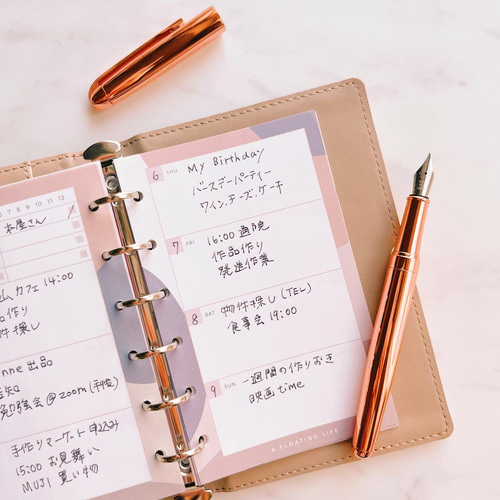 6 7 8 9 10 11 12
本屋さん
カフェ 14:00
作り
件探し
nne 出品
勉強会@zoom(手帳)
手作りマーケット 申込み
15:00 お見舞い
MUJI 買い物
6 THU My Birthday
バースデーパーティー
ワイン、チーズ、ケーキ
7 FRI 16:00 通院
作品作り
発送作業
8 SAT 物件探し(TEL)
食事会 19:00
9 SUN 一週間の作りおき
映画 time
A FLOATING LIFE